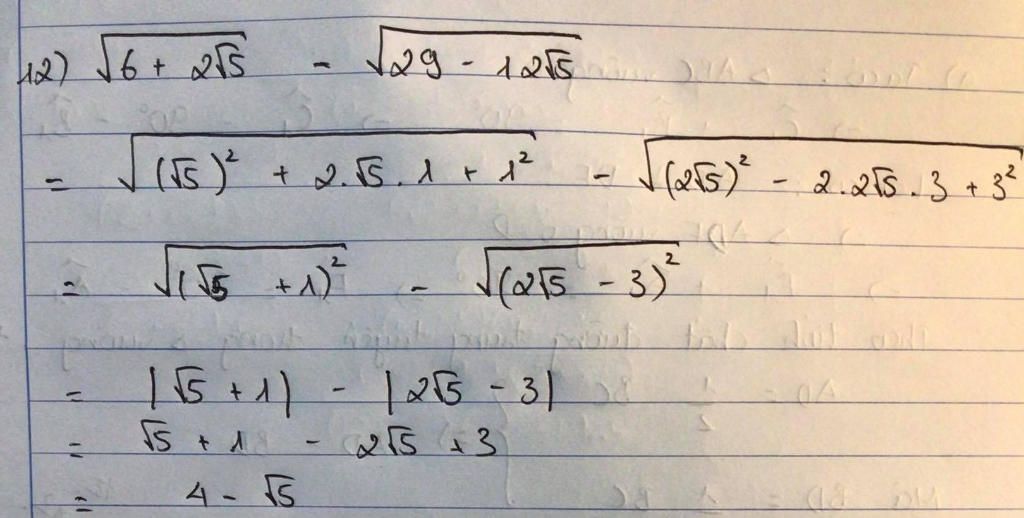 12) √(6 + 2√5) - √(29 - 12√5)
= √((√5)² + 2.√5.1 + 1²) - √((2√5)² - 2.2√5.3 + 3²)
= √((√5 + 1)²) - √((2√5 - 3)²)
= |√5 + 1| - |2√5 - 3|
= √5 + 1 - 2√5 + 3
= 4 - √5